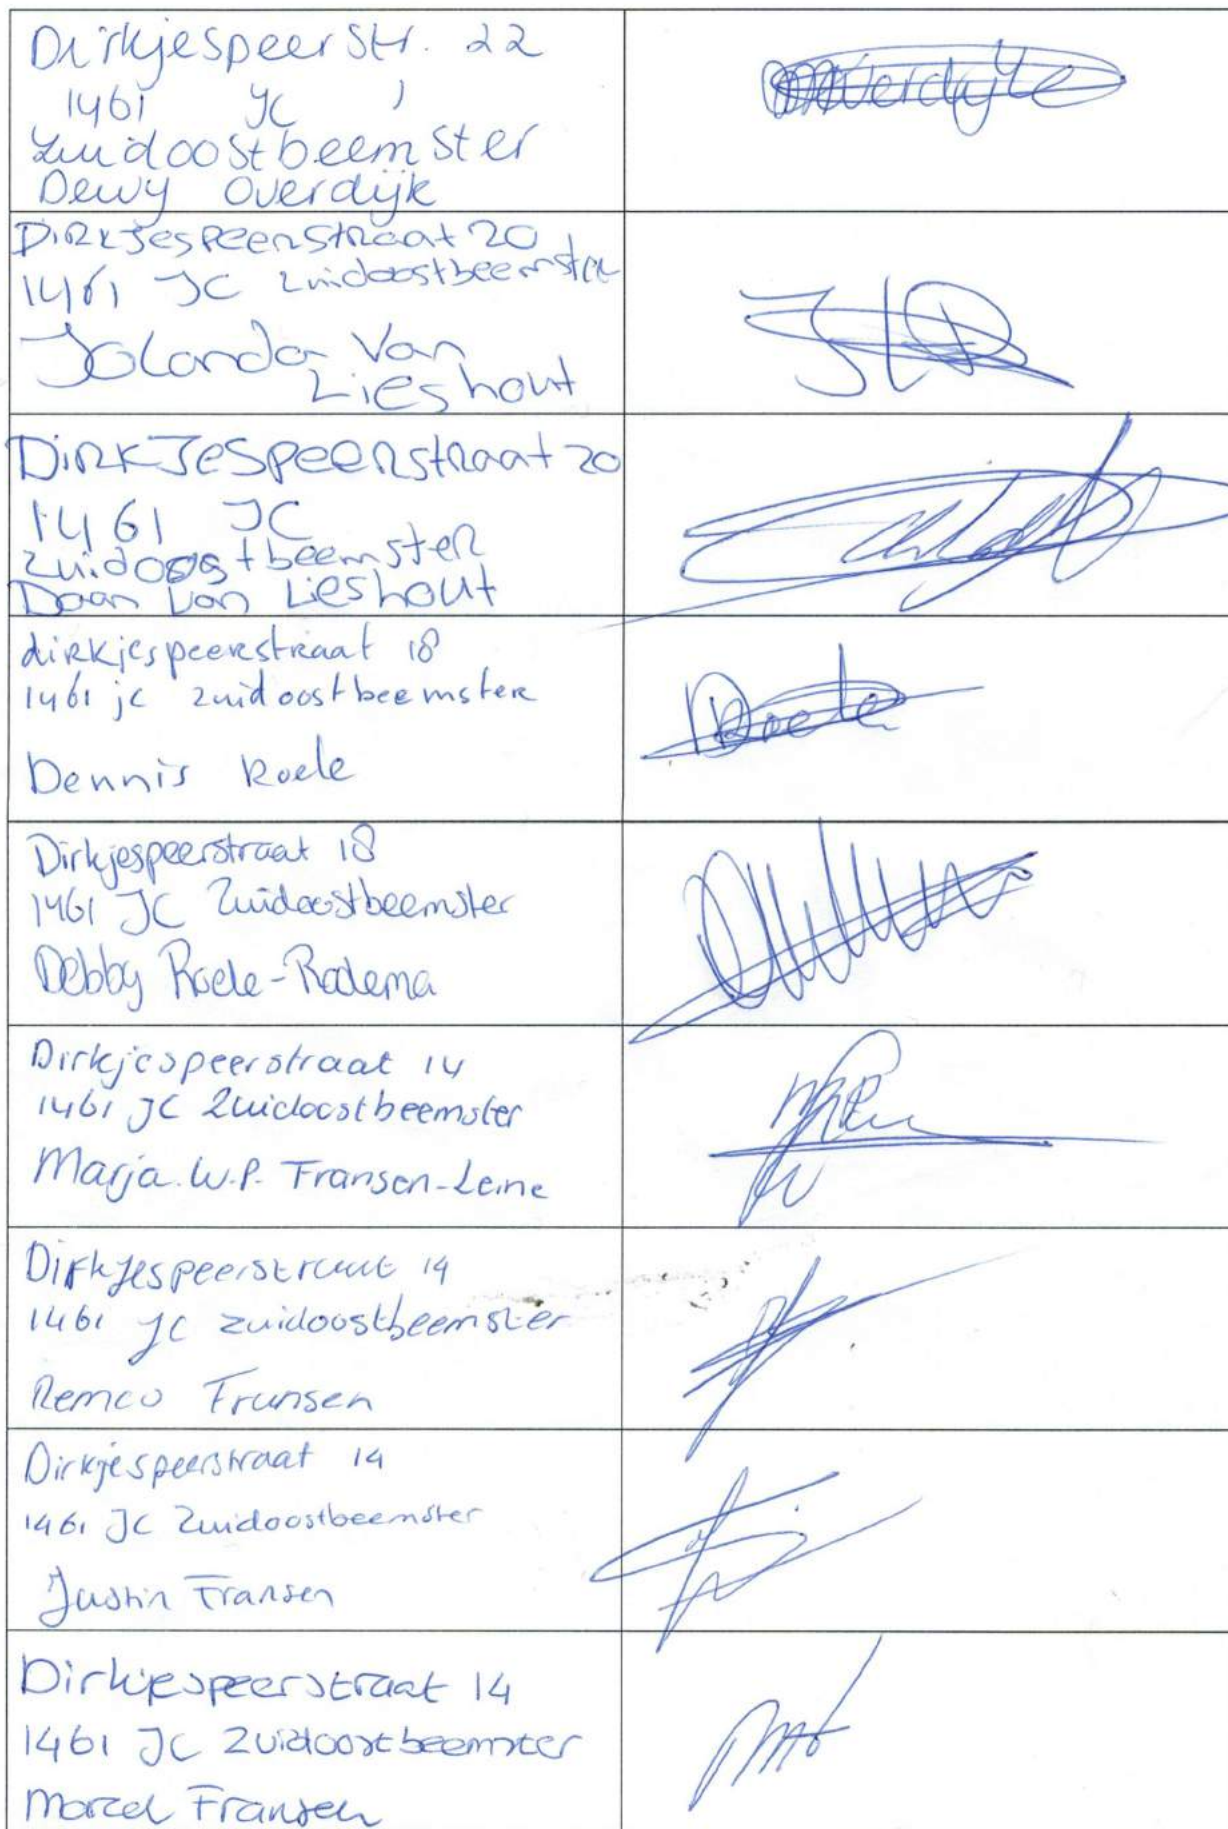 Dirkjespeerstr. 22
1461 JC
Zuidoostbeemster
Dewy Overdijk
Overdijk
DirkJespeerstraat 20
1461 JC Zuidoostbeemster
Jolanda Van
Lieshout
DirkJespeerstraat 20
1461 JC
Zuidoostbeemster
Daan van Lieshout
dirkjespeerstraat 18
1461 jc zuidoostbeemster
Dennis Roele
Roele
Dirkjespeerstraat 18
1461 JC Zuidoostbeemster
Debby Roele-Rodema
Dirkjespeerstraat 14
1461 JC Zuidoostbeemster
Marja. W.P. Fransen-Leine
Dirkjespeerstraat 14
1461 JC Zuidoostbeemster
Remco Fransen
Dirkjespeerstraat 14
1461 JC Zuidoostbeemster
Justin Fransen
Dirkjespeerstraat 14
1461 JC Zuidoostbeemster
Marcel Fransen